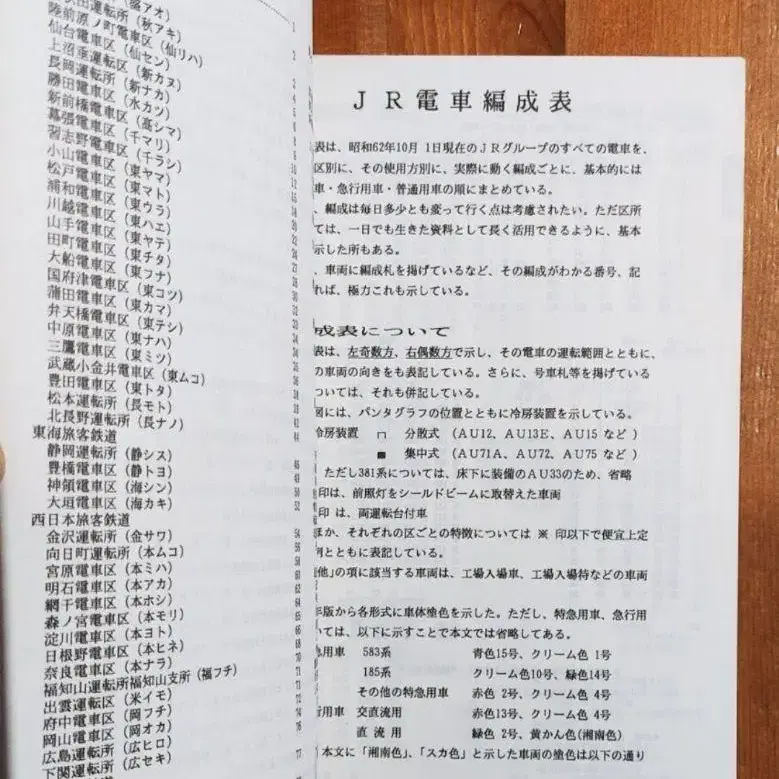 田運転所(秋アキ)
陸前原ノ町電車区(仙リハ)
仙台電車区(仙セン)
上沼垂運転区(新カヌ)
長岡運転所(新ナカ)
勝田電車区(水カツ)
新前橋電車区(高シマ)
幕張電車区(千マリ)
習志野電車区(千ラシ)
小山電車区(東ヤマ)
松戸電車区(東マト)
浦和電車区(東ウラ)
川越電車区(東ハエ)
山手電車区(東ヤテ)
田町電車区(東チタ)
大船電車区(東フナ)
国府津電車区(東コツ)
蒲田電車区(東カマ)
弁天橋電車区(東テシ)
中原電車区(東ナハ)
三鷹電車区(東ミツ)
武蔵小金井電車区(東ムコ)
豊田電車区(東トタ)
松本運転所(長モト)
北長野運転所(長ナノ)
東海旅客鉄道
静岡運転所(静シス)
豊橋電車区(静トヨ)
神領電車区(海シン)
大垣電車区(海カキ)
西日本旅客鉄道
金沢運転所(金サワ)
向日町運転所(本ムコ)
宮原電車区(本ミハ)
明石電車区(本アカ)
網干電車区(本ホシ)
森ノ宮電車区(本モリ)
淀川電車区(本ヨト)
日根野電車区(本ヒネ)
奈良電車区(本ナラ)
福知山運転所福知山支所(福フチ)
出雲運転区(米イモ)
府中電車区(岡フチ)
岡山電車区(岡オカ)
広島運転所(広ヒロ)
下関運転所(広セキ)
JR電車編成表
表は、昭和62年10月 1日現在のJRグループのすべての電車を、
区別に、その使用方別に、実際に動く編成ごとに、基本的には
車・急行用車・普通用車の順にまとめている。
、編成は毎日多少とも変って行く点は考慮されたい。ただ区所
ては、一日でも生きた資料として長く活用できるように、基本
示した所もある。
、車両に編成札を掲げているなど、その編成がわかる番号、記
れば、極力これも示している。
成表について
表は、左奇数方、右偶数方で示し、その電車の運転範囲とともに、
の車両の向きをも表記している。さらに、号車札等を掲げている
ついては、それも併記している。
図には、パンタグラフの位置とともに冷房装置を示している。
冷房装置 ┌┐ 分散式 (AU12、AU13E、AU15 など)
■ 集中式 (AU71A、AU72、AU75 など)
ただし381系については、床下に装備のAU33のため、省略
印は、前照灯をシールドビームに取替えた車両
印 は、両運転台付車
ほか、それぞれの区ごとの特徴については ※ 印以下で便宜上定
例とともに表記している。
他」の項に該当する車両は、工場入場車、工場入場待などの車両
年版から各形式に車体塗色を示した。ただし、特急用車、急行用
いては、以下に示すことで本文では省略してある。
急用車 583系 青色15号、クリーム色 1号
185系 クリーム色10号、緑色14号
その他の特急用車 赤色 2号、クリーム色 4号
行用車 交直流用 赤色13号、クリーム色 4号
直 流 用 緑色 2号、黄かん色(湘南色)
本文に「湘南色」、「スカ色」と示した車両の塗色は以下の通り